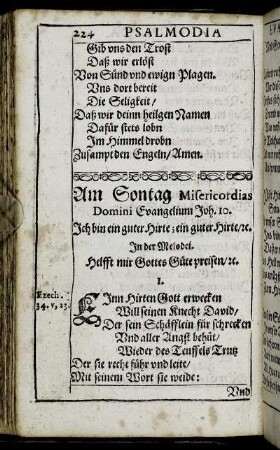 224 PSALMODIA
Gib vns den Trost
Daß wir erlöst
Von Sünd vnd ewign Plagen.
Vns dort bereit
Die Seligkeit /
Daß wir deinn heilgen Namen
Dafür stets lobn
Jm Himmel drobn
Zusampt den Engeln / Amen.
Am Sontag Misericordias
Domini Evangelium Joh. 10.
Jch bin ein guter Hirte: ein guter Hirte / ꝛc.
Jn der Melodei.
Helfft mir Gottes Güte preisen / ꝛc.
1.
Ezech. 34. v. 23.
EJnn Hirten Gott erwecken
Will seinen Knecht David /
Der sein Schäfflein für schrecken
Vnd aller Angst behüt /
Wieder des Teuffels Trutz
Der sie recht führ vnd leite /
Mit seinem Wort sie weide:
Vnd